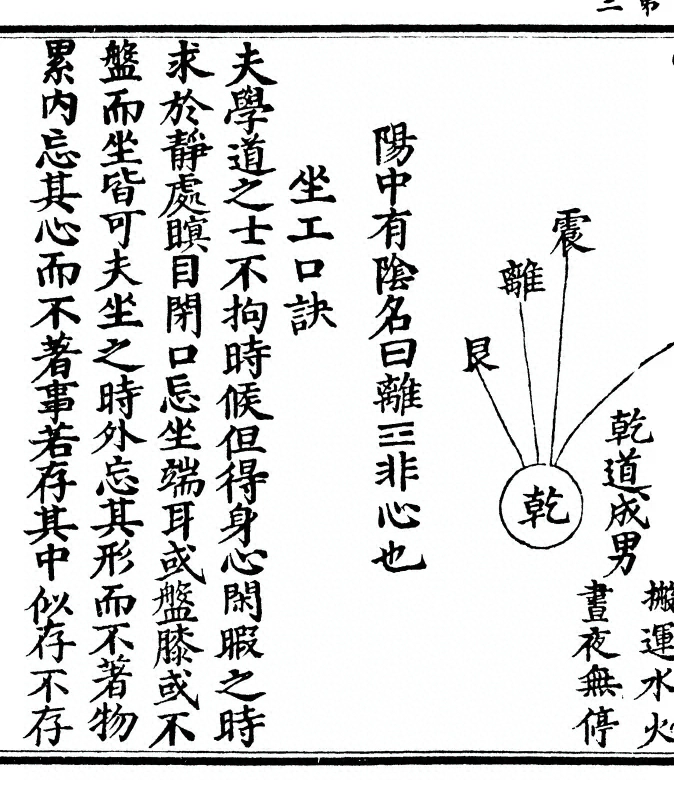 乾道成男
搬運水火
晝夜無停
震
離
艮
乾
陽中有陰名曰離☲非心也
坐工口訣
夫學道之士不拘時候但得身心閑暇之時
求於靜處瞑目閉口忌坐端耳或盤膝或不
盤而坐皆可夫坐之時外忘其形而不著物
累內忘其心而不著事若存其中似存不存